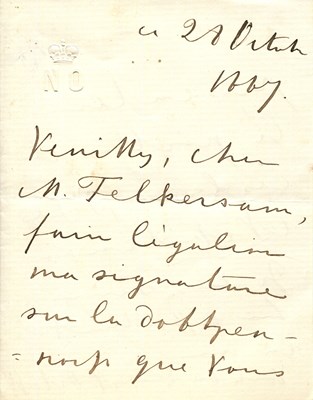 ce 28 Octobre
1887.
Veuillez, cher
M. Felkersam,
faire légaliser
ma signature
sur la
que Vous